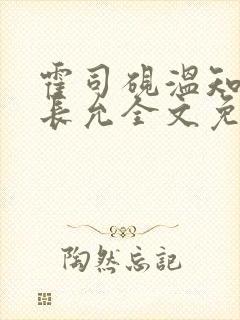 霍司砚温知
長允全文免
陶然忘记